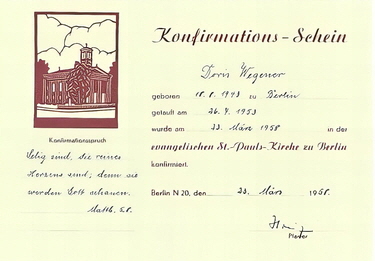 Konfirmations-Schein
Doris Wegener
geboren 18.8.1943 zu Berlin
getauft am 26.4.1953
wurde am 23. März 1958 in der
evangelischen St.-Pauls-Kirche zu Berlin
konfirmiert.
Berlin N 20, den 23. März 1958.
Konfirmationsspruch
Selig sind, die reines
Herzens sind; denn sie
werden Gott schauen.
Matth. 5,8.